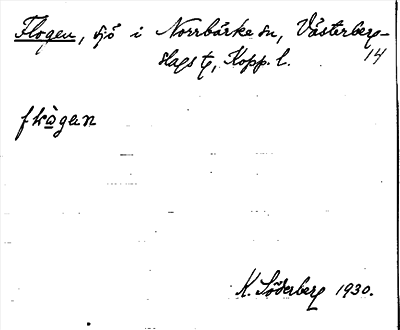 Flogen, sjö i Norrbärke sn, Västerberg-
slags tg, Kopp. l. 14
fkògan
K. Söderberg 1930.